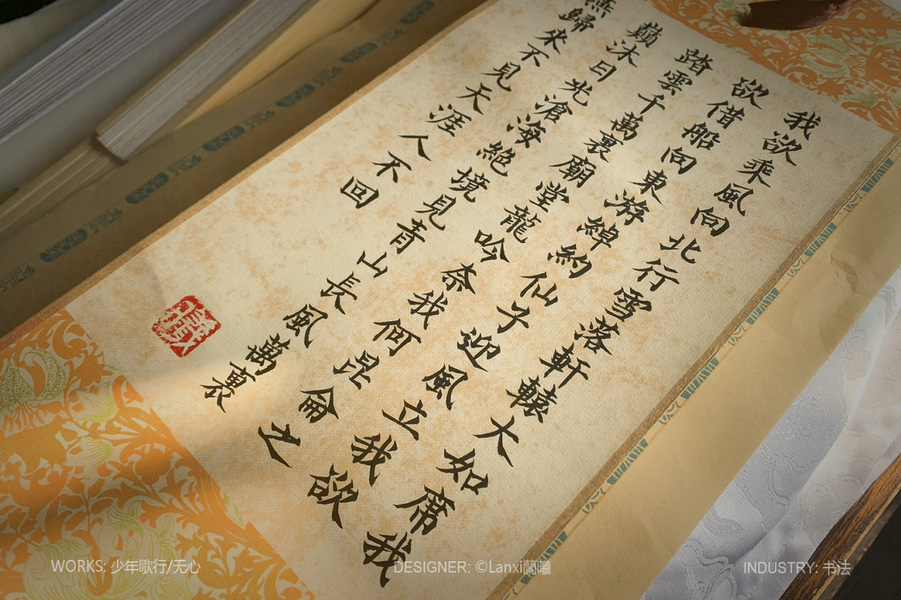 我欲乘風向北行雪落軒轅大如席我
欲借船向東游綽約仙子迎風立我欲
踏雲千萬裏廟堂龍吟奈我何昆侖之
巔沐日光滄海絕境見青山長風萬裏
燕歸來不見天涯人不回
WORKS: 少年歌行/无心
DESIGNER: ©Lanxi蘭曦
INDUSTRY: 书法